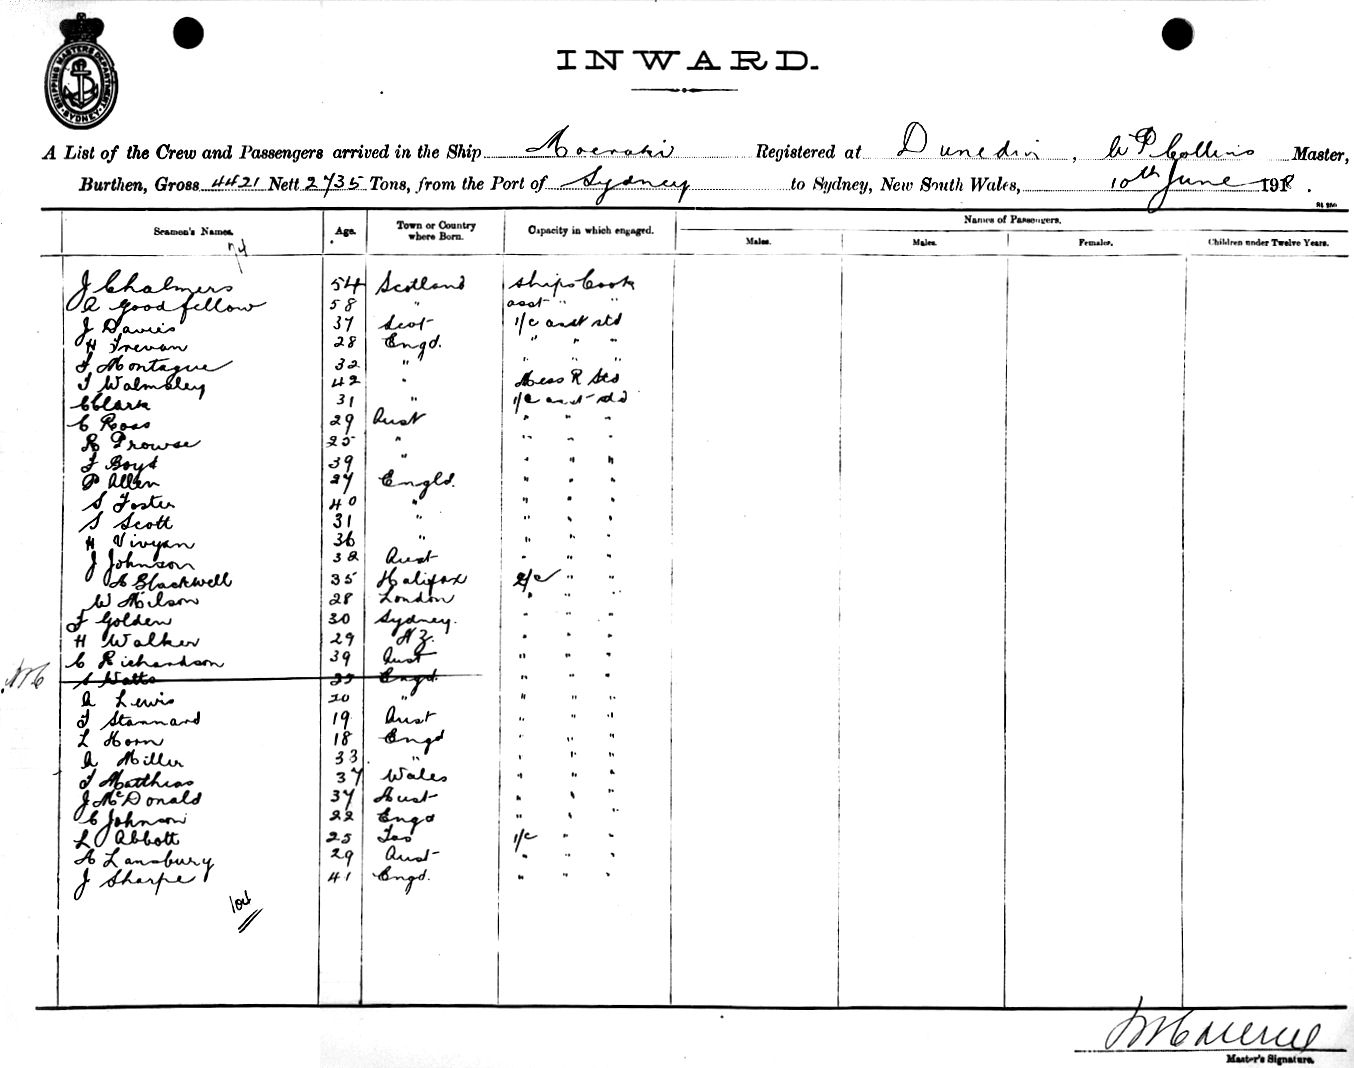 SHIPPING MASTERS DEPARTMENT SYDNEY
INWARD.
A List of the Crew and Passengers arrived in the Ship Moeraki Registered at Dunedin, W P Collins Master,
Burthen, Gross 4421 Nett 2735 Tons, from the Port of Sydney to Sydney, New South Wales, 10th June 1918.
Seamen's Names. Age. Town or Country where Born. Capacity in which engaged. Names of Passengers.
Males. Males. Females. Children under Twelve Years.
74
J Chalmers 54 Scotland Ships Cook
A Goodfellow 58 " asst " "
J Davies 37 Scot 1/c asst std
H Trevan 28 Engd. " " "
F Montague 32 " " " "
T Walmsley 42 " Mess R Std
C Clark 31 " 1/c asst std
C Ross 29 Aust " " "
R Prowse 25 " " " "
F Boyd 39 " " " "
P Allen 27 Engld. " " "
S Foster 40 " " " "
S Scott 31 " " " "
H Vivyan 36 " " " "
J Johnson 32 Aust " " "
A Blackwell 35 Halifax 2/c " "
W Milson 28 London " " "
F Golden 30 Sydney. " " "
H Walker 29 NZ. " " "
C Richardson 39 Aust " " "
S Watts 25 Engd. " " "
A Lewis 20 " " " "
T Stannard 19 Aust " " "
L Horn 18 Engd " " "
A Miller 33 " " " "
T Matthias 37 Wales " " "
J McDonald 37 Aust " " "
C Johnson 22 Engd " " "
L Abbott 25 Tas 1/c " "
A Lansbury 29 Aust " " "
J Sharpe 41 Engd. " " "
104
Master's Signature.